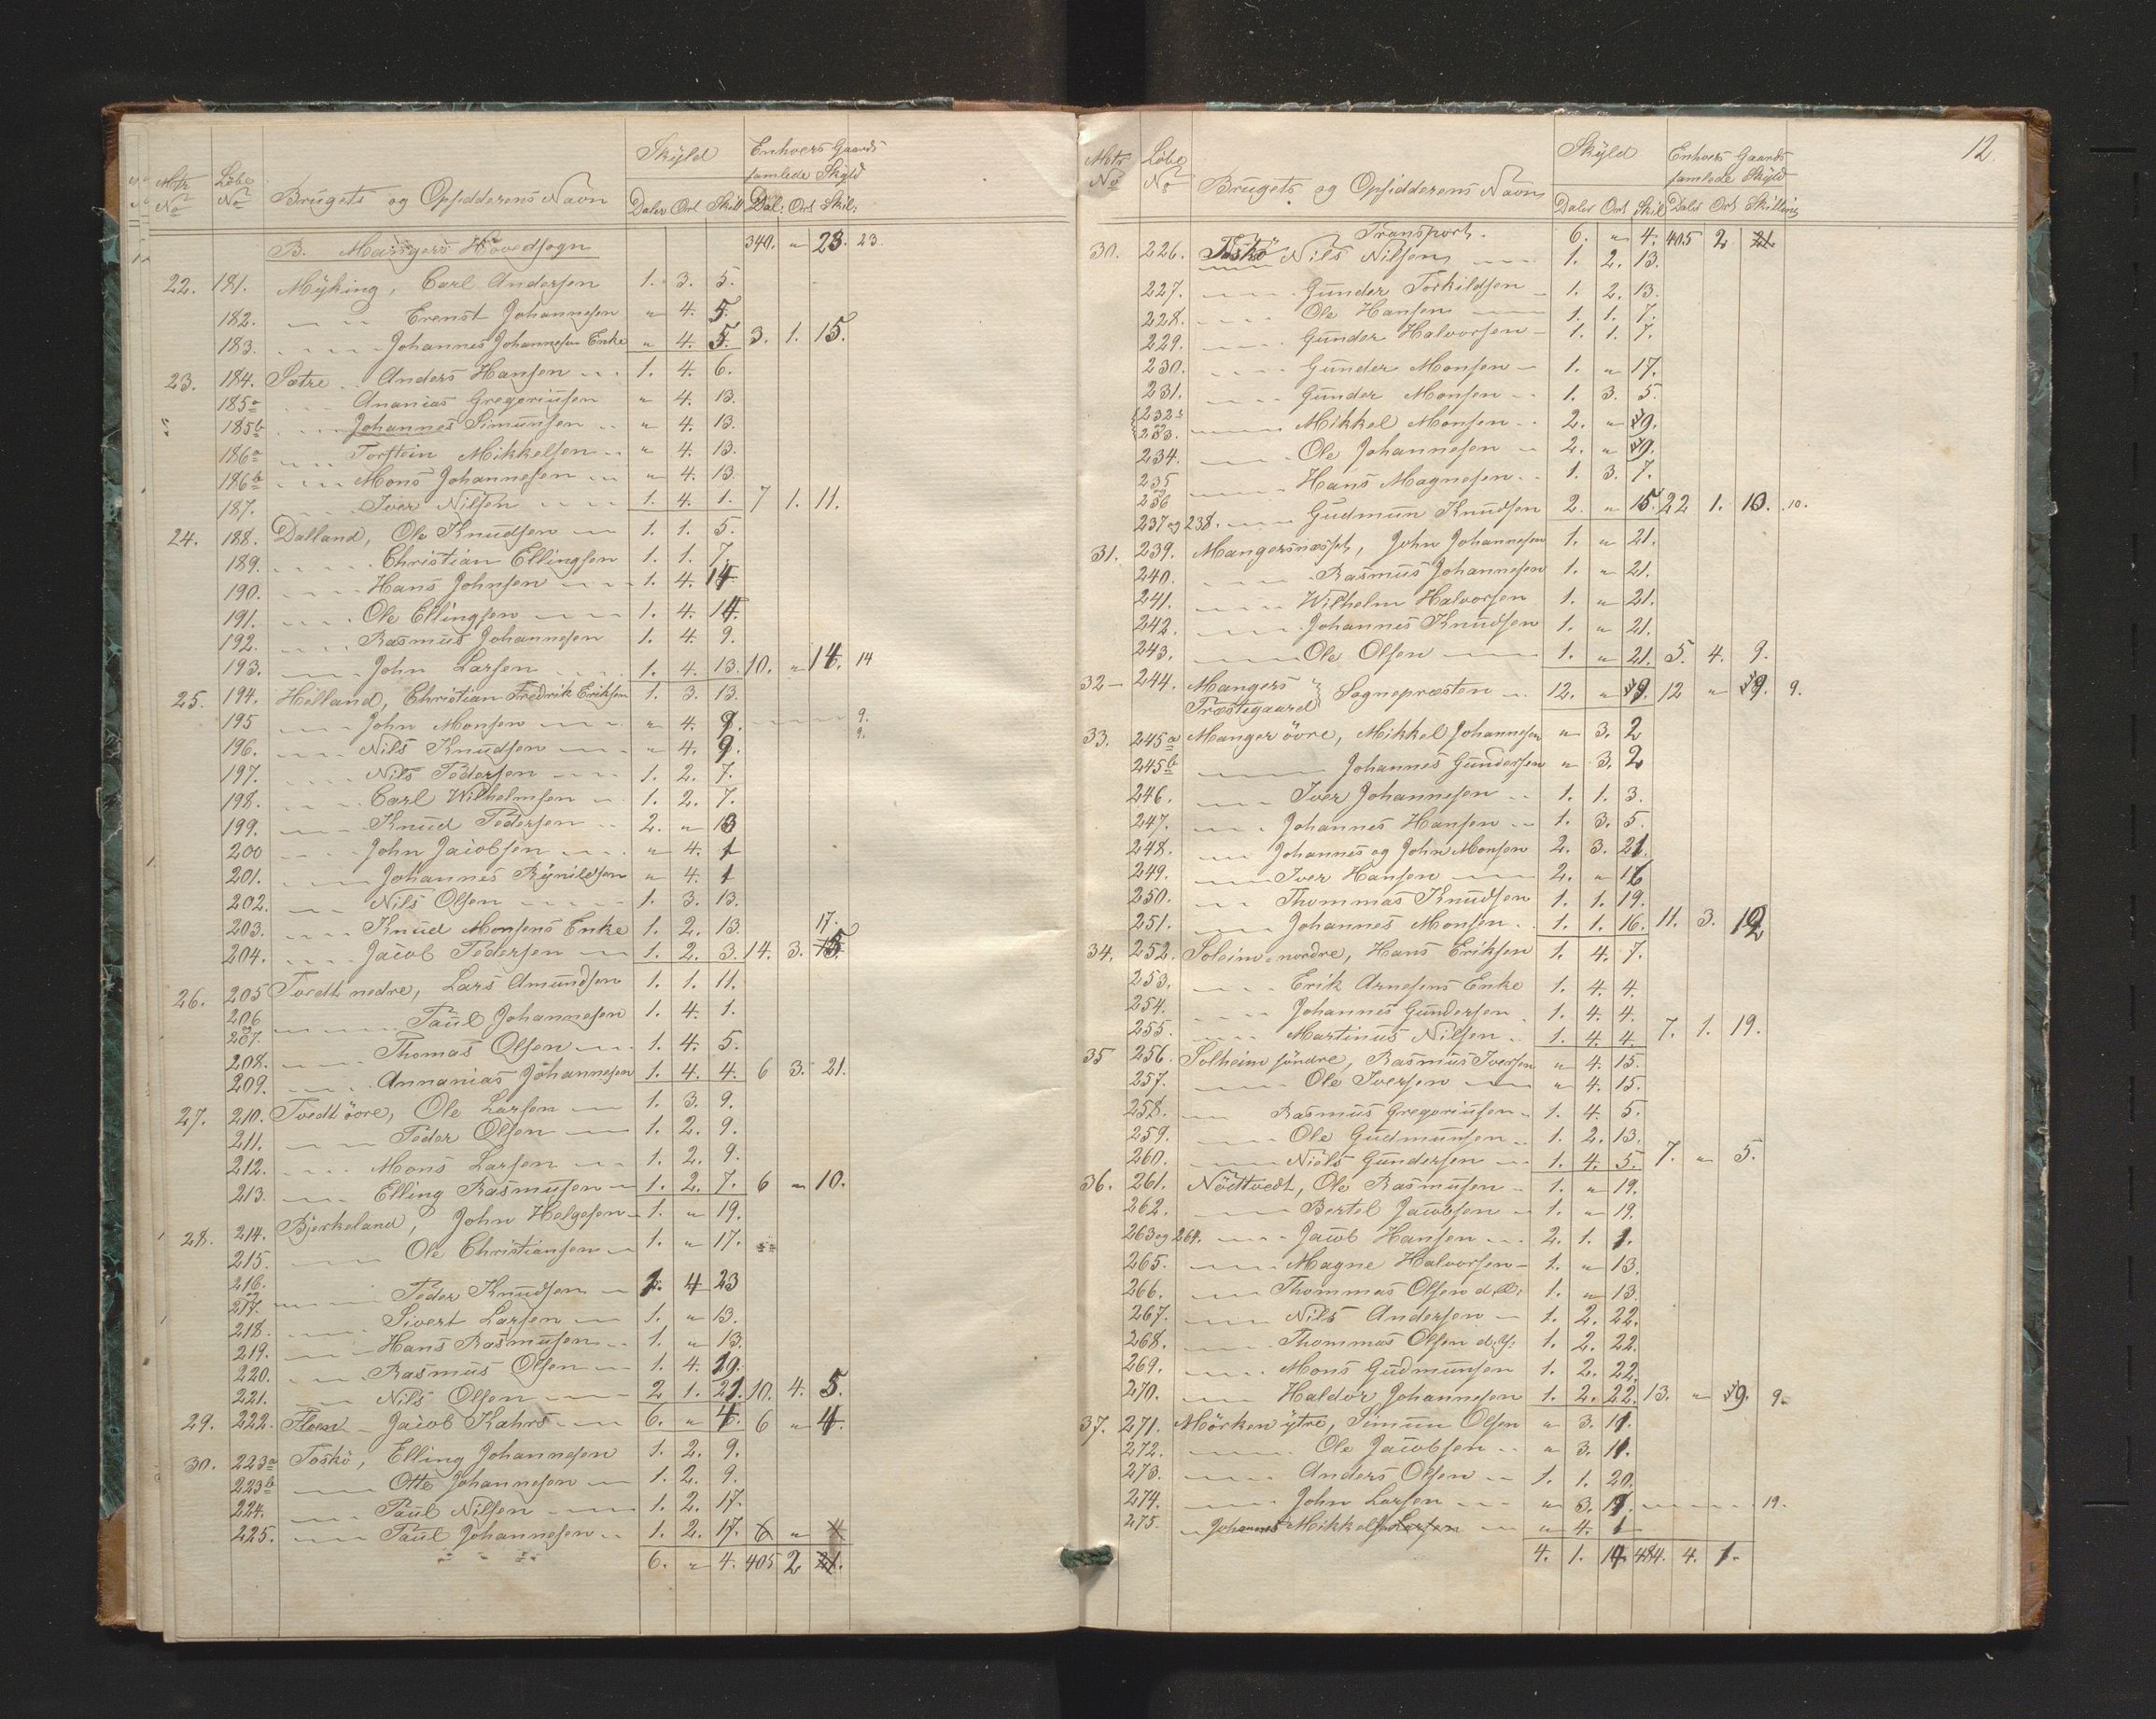 Matr No Löbe No Brugets og Opsidderens Navn Skyld Enhvers Gaards samlede Skyld
Daler Ort Skill Dal: Ort Skil:
B. Mangers Hovedsogn 340. " 23. 23
22. 181. Myking, Carl Andersen 1. 3. 5.
182. Erenst Johannesen " 4. 5.
183. Johannes Johannesen Enke " 4. 5. 3. 1. 15.
23. 184. Sætre Anders Hansen 1. 4. 6.
185a Ananias Gregoriusen " 4. 13.
185b Johannes Simunsen " 4. 13.
186a Torstein Mikkelsen " 4. 13.
186b Mons Johannesen " 4. 13.
187. Iver Nilsen 1. 4. 1. 7 1. 11.
24. 188. Dalland, Ole Knudsen 1. 1. 5.
189. Christian Ellingsen 1. 1. 7.
190. Hans Johnsen 1. 4. 14.
191. Ole Ellingsen 1. 4. 14.
192. Rasmus Johannesen 1. 4. 9.
193. John Larsen 1. 4. 13. 10. " 14. 14
25. 194. Helland, Christian Fredrik Eriksen 1. 3. 13.
195 John Monsen " 4. 9. 9.
196. Nils Knudsen " 4. 9. 9.
197. Nils Pedersen 1. 2. 7.
198. Carl Wilhelmsen 1. 2. 7.
199. Knud Pedersen 2. " 13
200 John Jacobsen " 4. 1
201. Johannes Rynildsen " 4. 1
202. Nils Olsen 1. 3. 13.
203. Knud Monsens Enke 1. 2. 13. 17.
204. Jacob Pedersen 1. 2. 3. 14. 3.
26. 205 Tvedt nedre, Lars Amundsen 1. 1. 11.
206 og 207. Paul Johannesen 1. 4. 1.
208. Thomas Olsen 1. 4. 5.
209. Annanias Johannesen 1. 4. 4. 6 3. 21.
27. 210. Tvedt övre, Ole Larsen 1. 3. 9.
211. Peder Olsen 1. 2. 9.
212. Mons Larsen 1. 2. 9.
213. Elling Rasmusen 1. 2. 7. 6 " 10.
28. 214. Bjerkeland, John Helgesen 1. " 19.
215. Ole Christiansen 1. " 17.
216. og 217. Peder Knudsen 4 23
218. Sivert Larsen 1. " 13.
219. Hans Rasmusen 1. " 13.
220. Rasmus Olsen 1. 4. 19.
221. Nils Olsen 2 1. 21. 10. 4. 5.
29. 222. Floen Jacob Kahrs 6. " 4. 6 " 4.
30. 223a Toskö, Elling Johannesen 1. 2. 9.
223b Otte Johannesen 1. 2. 9.
224. Paul Nilsen 1. 2. 17.
225. Paul Johannesen 1. 2. 17. 6 " 4
6. " 4. 405 2 21.
12.
Matr No Löbe No Brugets og Opsidderens Navn Skyld Enhvers Gaards samlede Skyld
Daler Ort Skil Daler Ort Skilling
Transport. 6. " 4. 405 2 21.
30. 226. Toskö Nils Nilsen 1. 2. 13.
227. Gunder Torkildsen 1. 2. 13.
228. Ole Hansen 1. 1. 7.
229. Gunder Halvorsen 1. 1. 7.
230. Gunder Monsen 1. " 17.
231. Gunder Monsen 1. 3. 5.
232 og 233. Mikkel Monsen 2. " 9.
234. Ole Johannesen 2. " 9.
235 Hans Magnesen 1. 3. 7.
236 237 og 238. Gudmun Knudsen 2. " 15. 22 1. 10. 10.
31. 239. Mangersnæsset, John Johannesen 1. " 21.
240. Rasmus Johannesen 1. " 21.
241. Wilhelm Halvorsen 1. " 21.
242. Johannes Knudsen 1. " 21.
243. Ole Olsen 1. " 21. 5. 4. 9.
32 244. Mangers Præstegaard } Sognepræsten 12. " 9. 12 " 9. 9.
33. 245a Manger övre, Mikkel Johannesen " 3. 2
245b Johannes Gundersen " 3. 2
246. Iver Johannesen 1. 1. 3.
247. Johannes Hansen 1. 3. 5.
248. Johannes og John Monsen 2. 3. 21.
249. Iver Hansen 2. " 16
250. Thommas Knudsen 1. 1. 19.
251. Johannes Monsen 1. 1. 16. 11. 3. 12
34. 252. Soleim nordre, Hans Eriksen 1. 4. 7.
253. Erik Arnesens Enke 1. 4. 4.
254. Johannes Gundersen 1. 4. 4.
255. Martinus Nilsen 1. 4. 4. 7. 1. 19.
35 256. Solheim söndre, Rasmus Iversen " 4. 15.
257. Ole Iversen " 4. 15.
258. Rasmus Gregoriusen 1. 4. 5.
259. Ole Gudmunsen 1. 2. 13.
260. Niels Gundersen 1. 4. 5. 7. " 5.
36. 261. Nödtvedt, Ole Rasmusen 1. " 19.
262. Bertel Jacobsen 1. " 19.
263 og 264. Jacob Hansen 2. 1. 1.
265. Magne Halvorsen 1. " 13.
266. Thommas Olsen d. Æ. 1. " 13.
267. Nils Andersen 1. 2. 22.
268. Thommas Olsen d. y. 1. 2. 22.
269. Mons Gudmunsen 1. 2. 22.
270. Haldor Johannesen 1. 2. 22. 13. " 9. 9.
37. 271. Mörken ytre, Simun Olsen " 3. 11.
272. Ole Jacobsen " 3. 11.
273. Anders Olsen 1. 1. 20.
274. John Larsen " 3. 19.
275. Johannes Mikkelsen " 4. 1
4. 1. 19. 484. 4. 1.